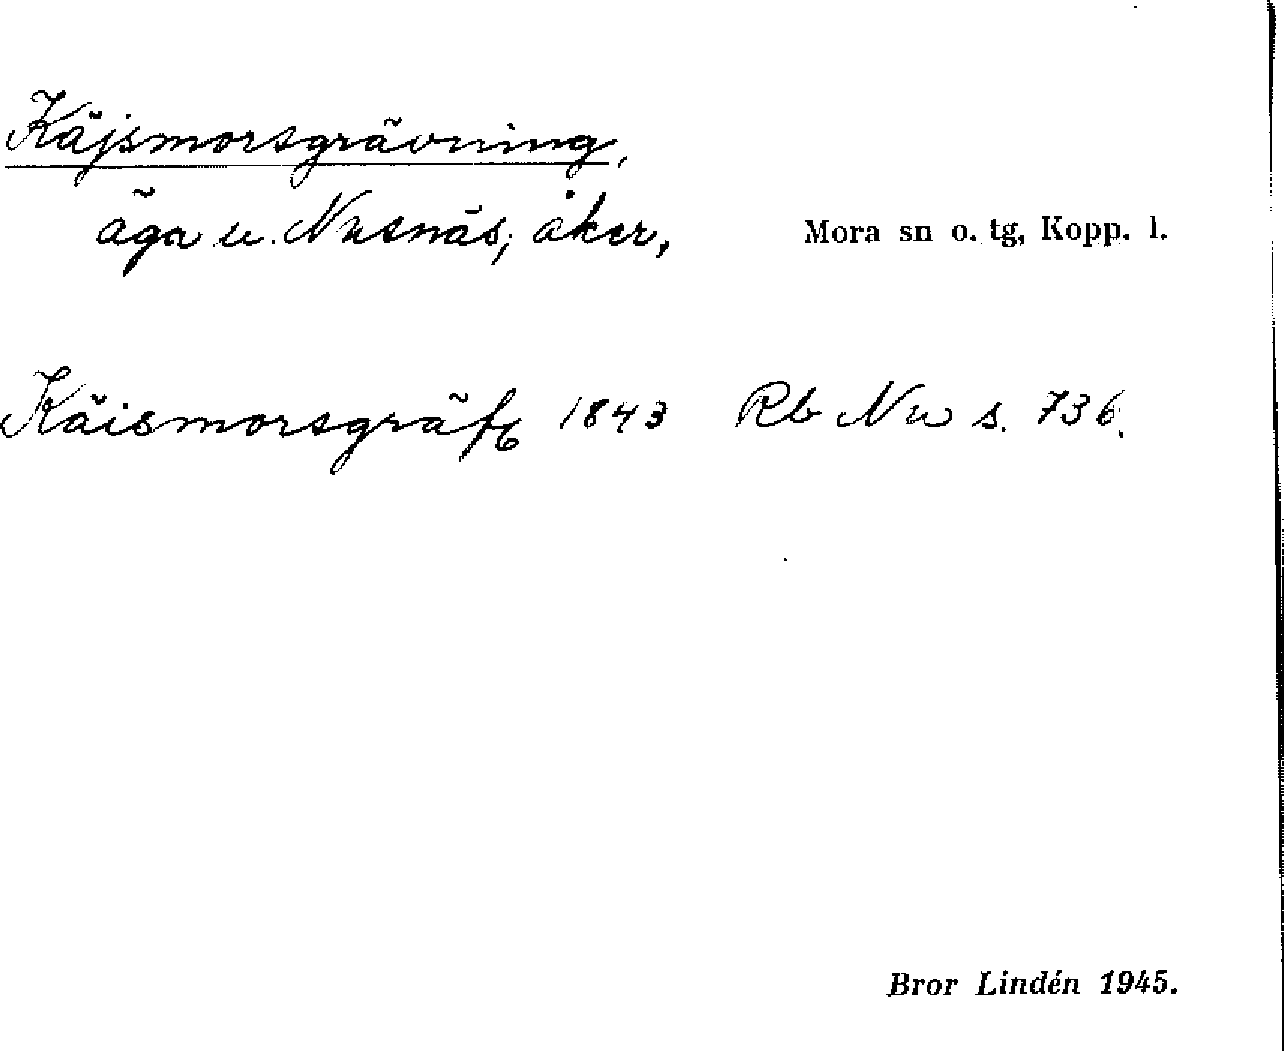 Käjsmorsgrävning,
äga u. Nusnäs; åker,
Mora sn o. tg, Kopp. l.
Käismorsgräfg 1843 Rb Nu s. 736.
Bror Lindén 1945.